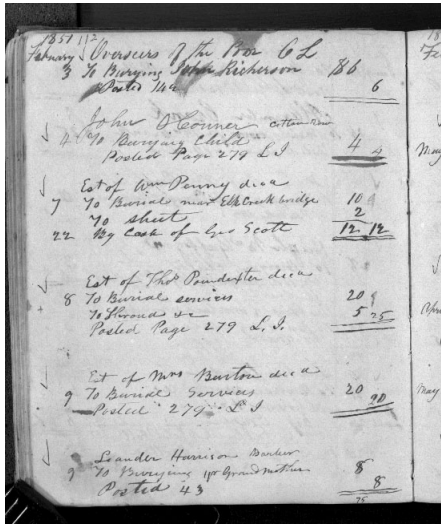 1851 112
February Overseers of the Poor C L
3 To Burying John Richerson $6
Posted 142 6
John O'Conner
4 To Burying Child 4
Posted Page 279 L I 4
Est of Wm Penny decd
7 To Burial near Elk Creek bridge 10
To sheet 2
22 By Cash of Geo Scott 12 12
Est of Thos Poindexter decd
8 To Burial services 20
To Shroud &c 5 25
Posted Page 279 L. I.
Est of Mrs Burton decd
9 To Burial Services 20
Posted 279 L I 20
Leander Harrison Barber
9 To Burying yr Grandmother 8
Posted 43 8
75
May
Apr
May